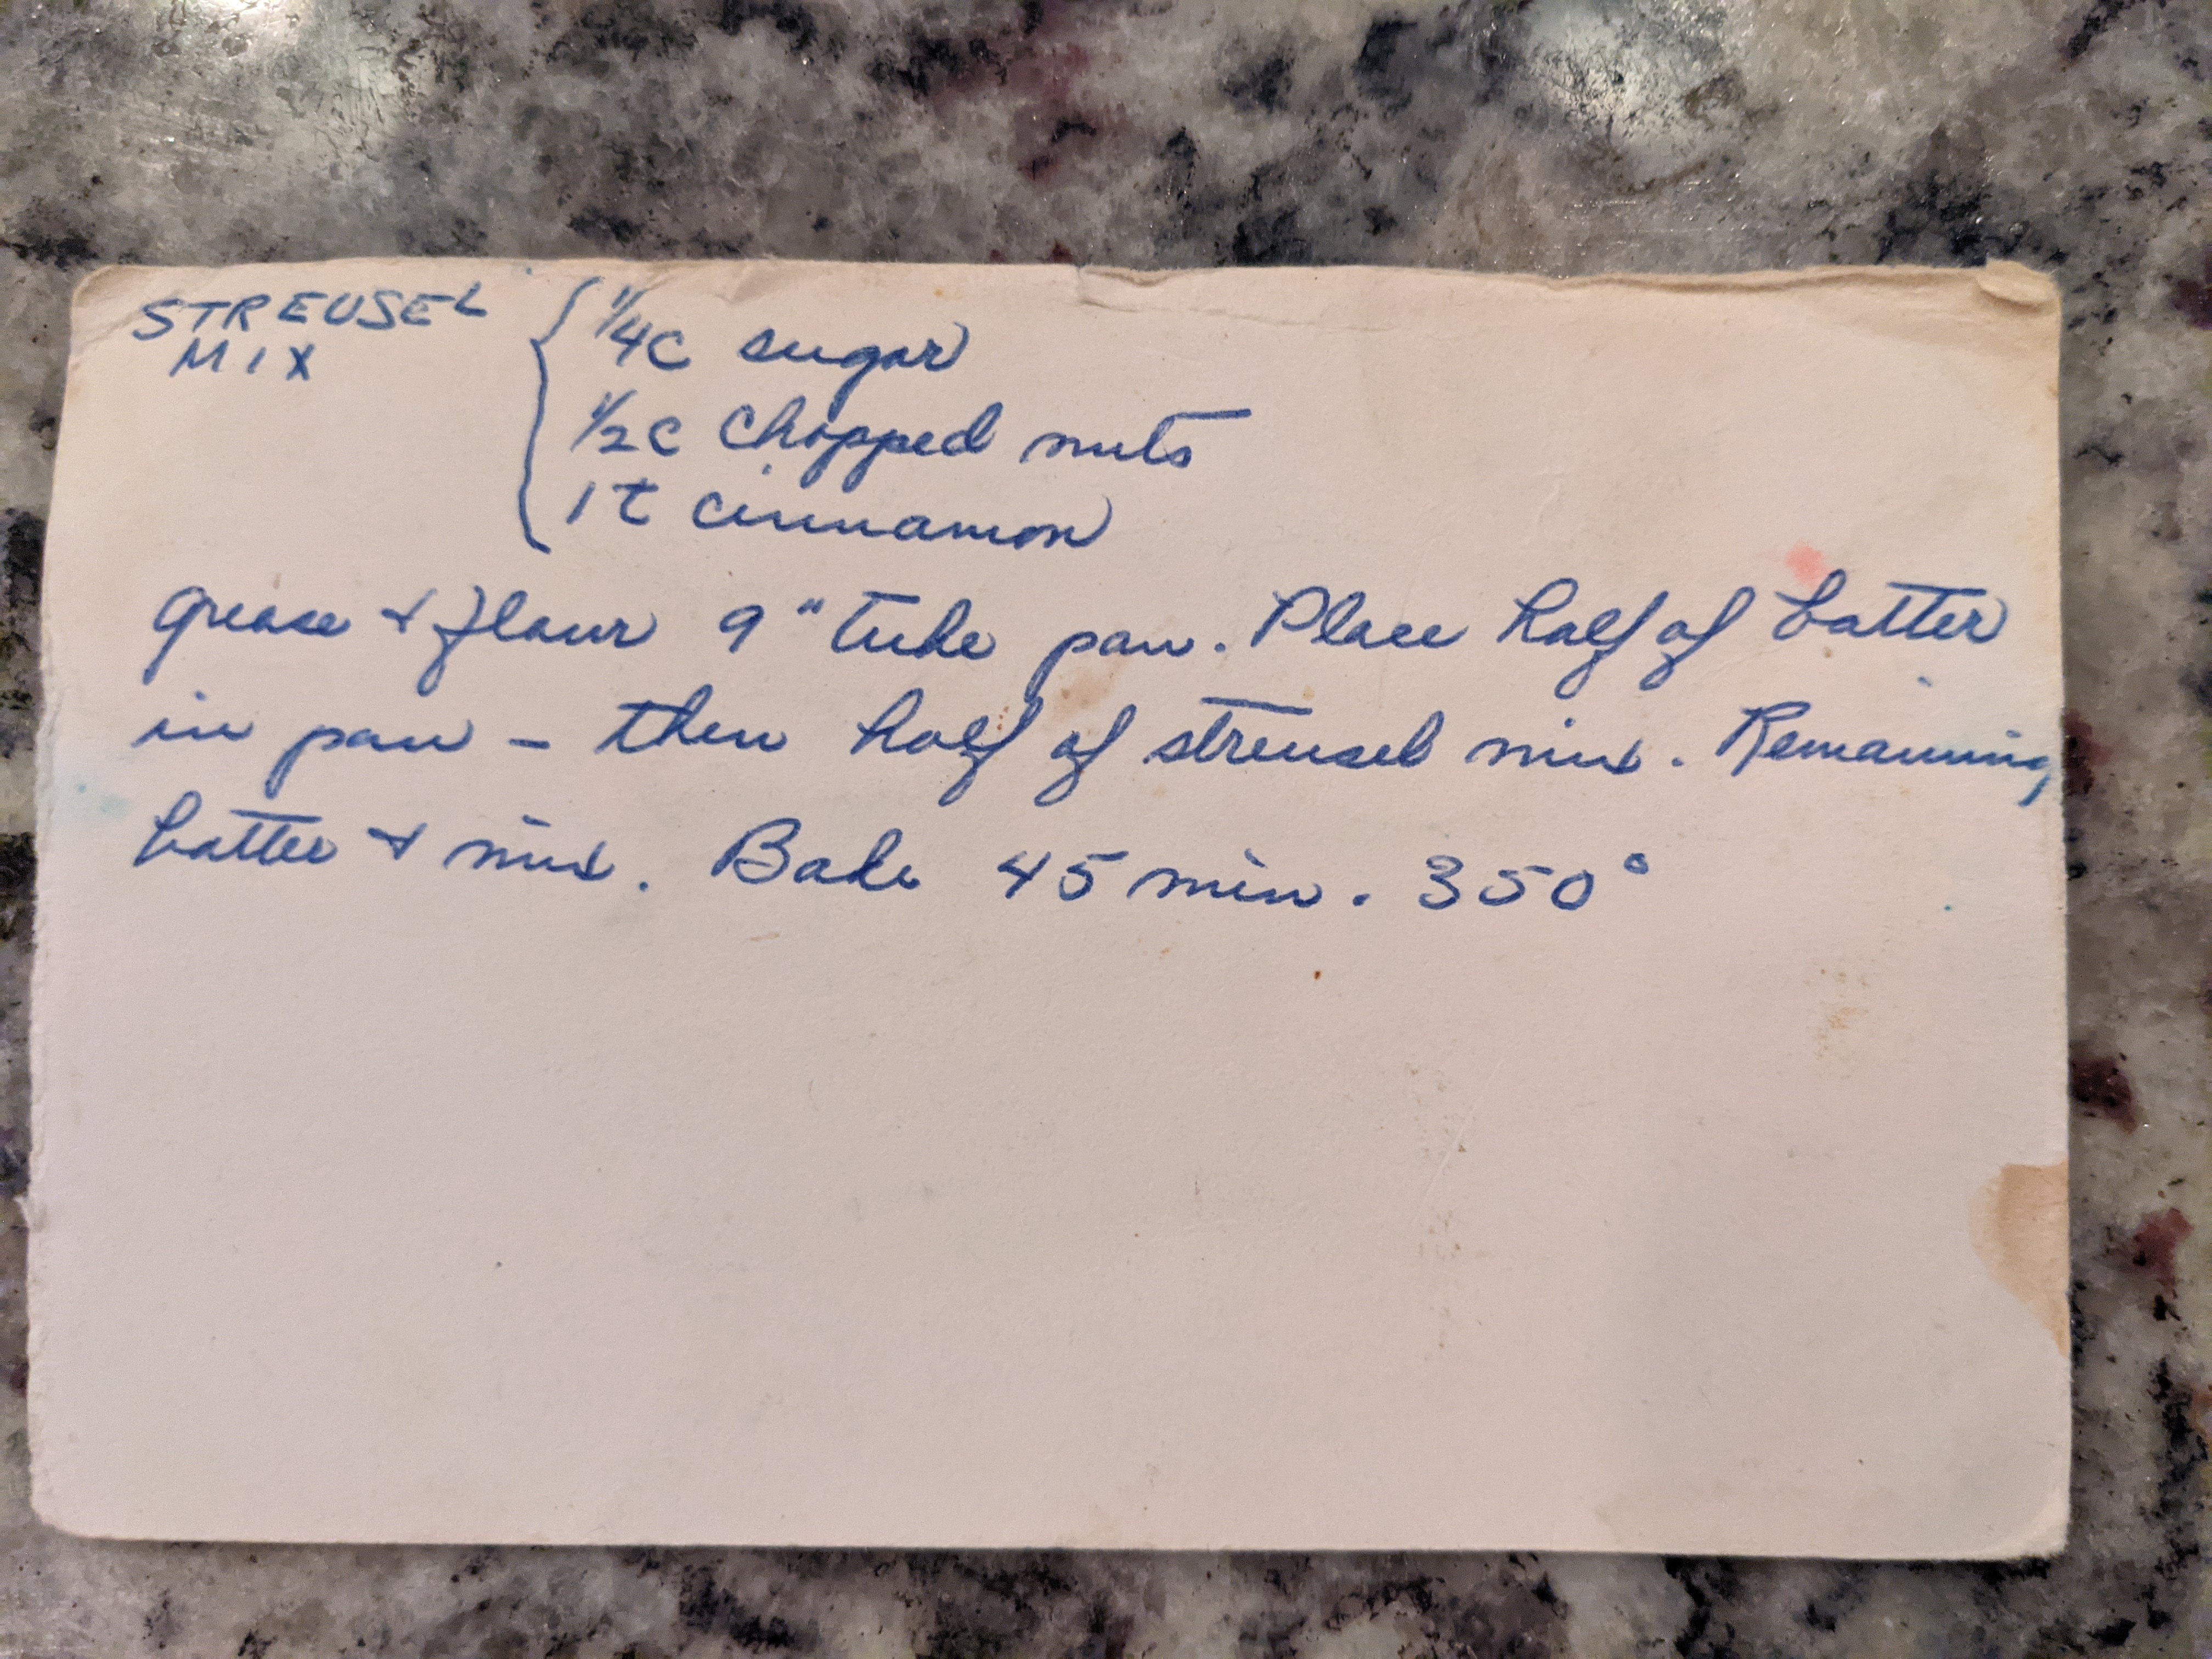 STREUSEL
MIX
1/4c sugar
1/2c chopped nuts
1 t cinnamon
grease + flour 9" tube pan. Place half of batter
in pan - then half of streusel mix. Remaining
batter + mix. Bake 45 min. 350°